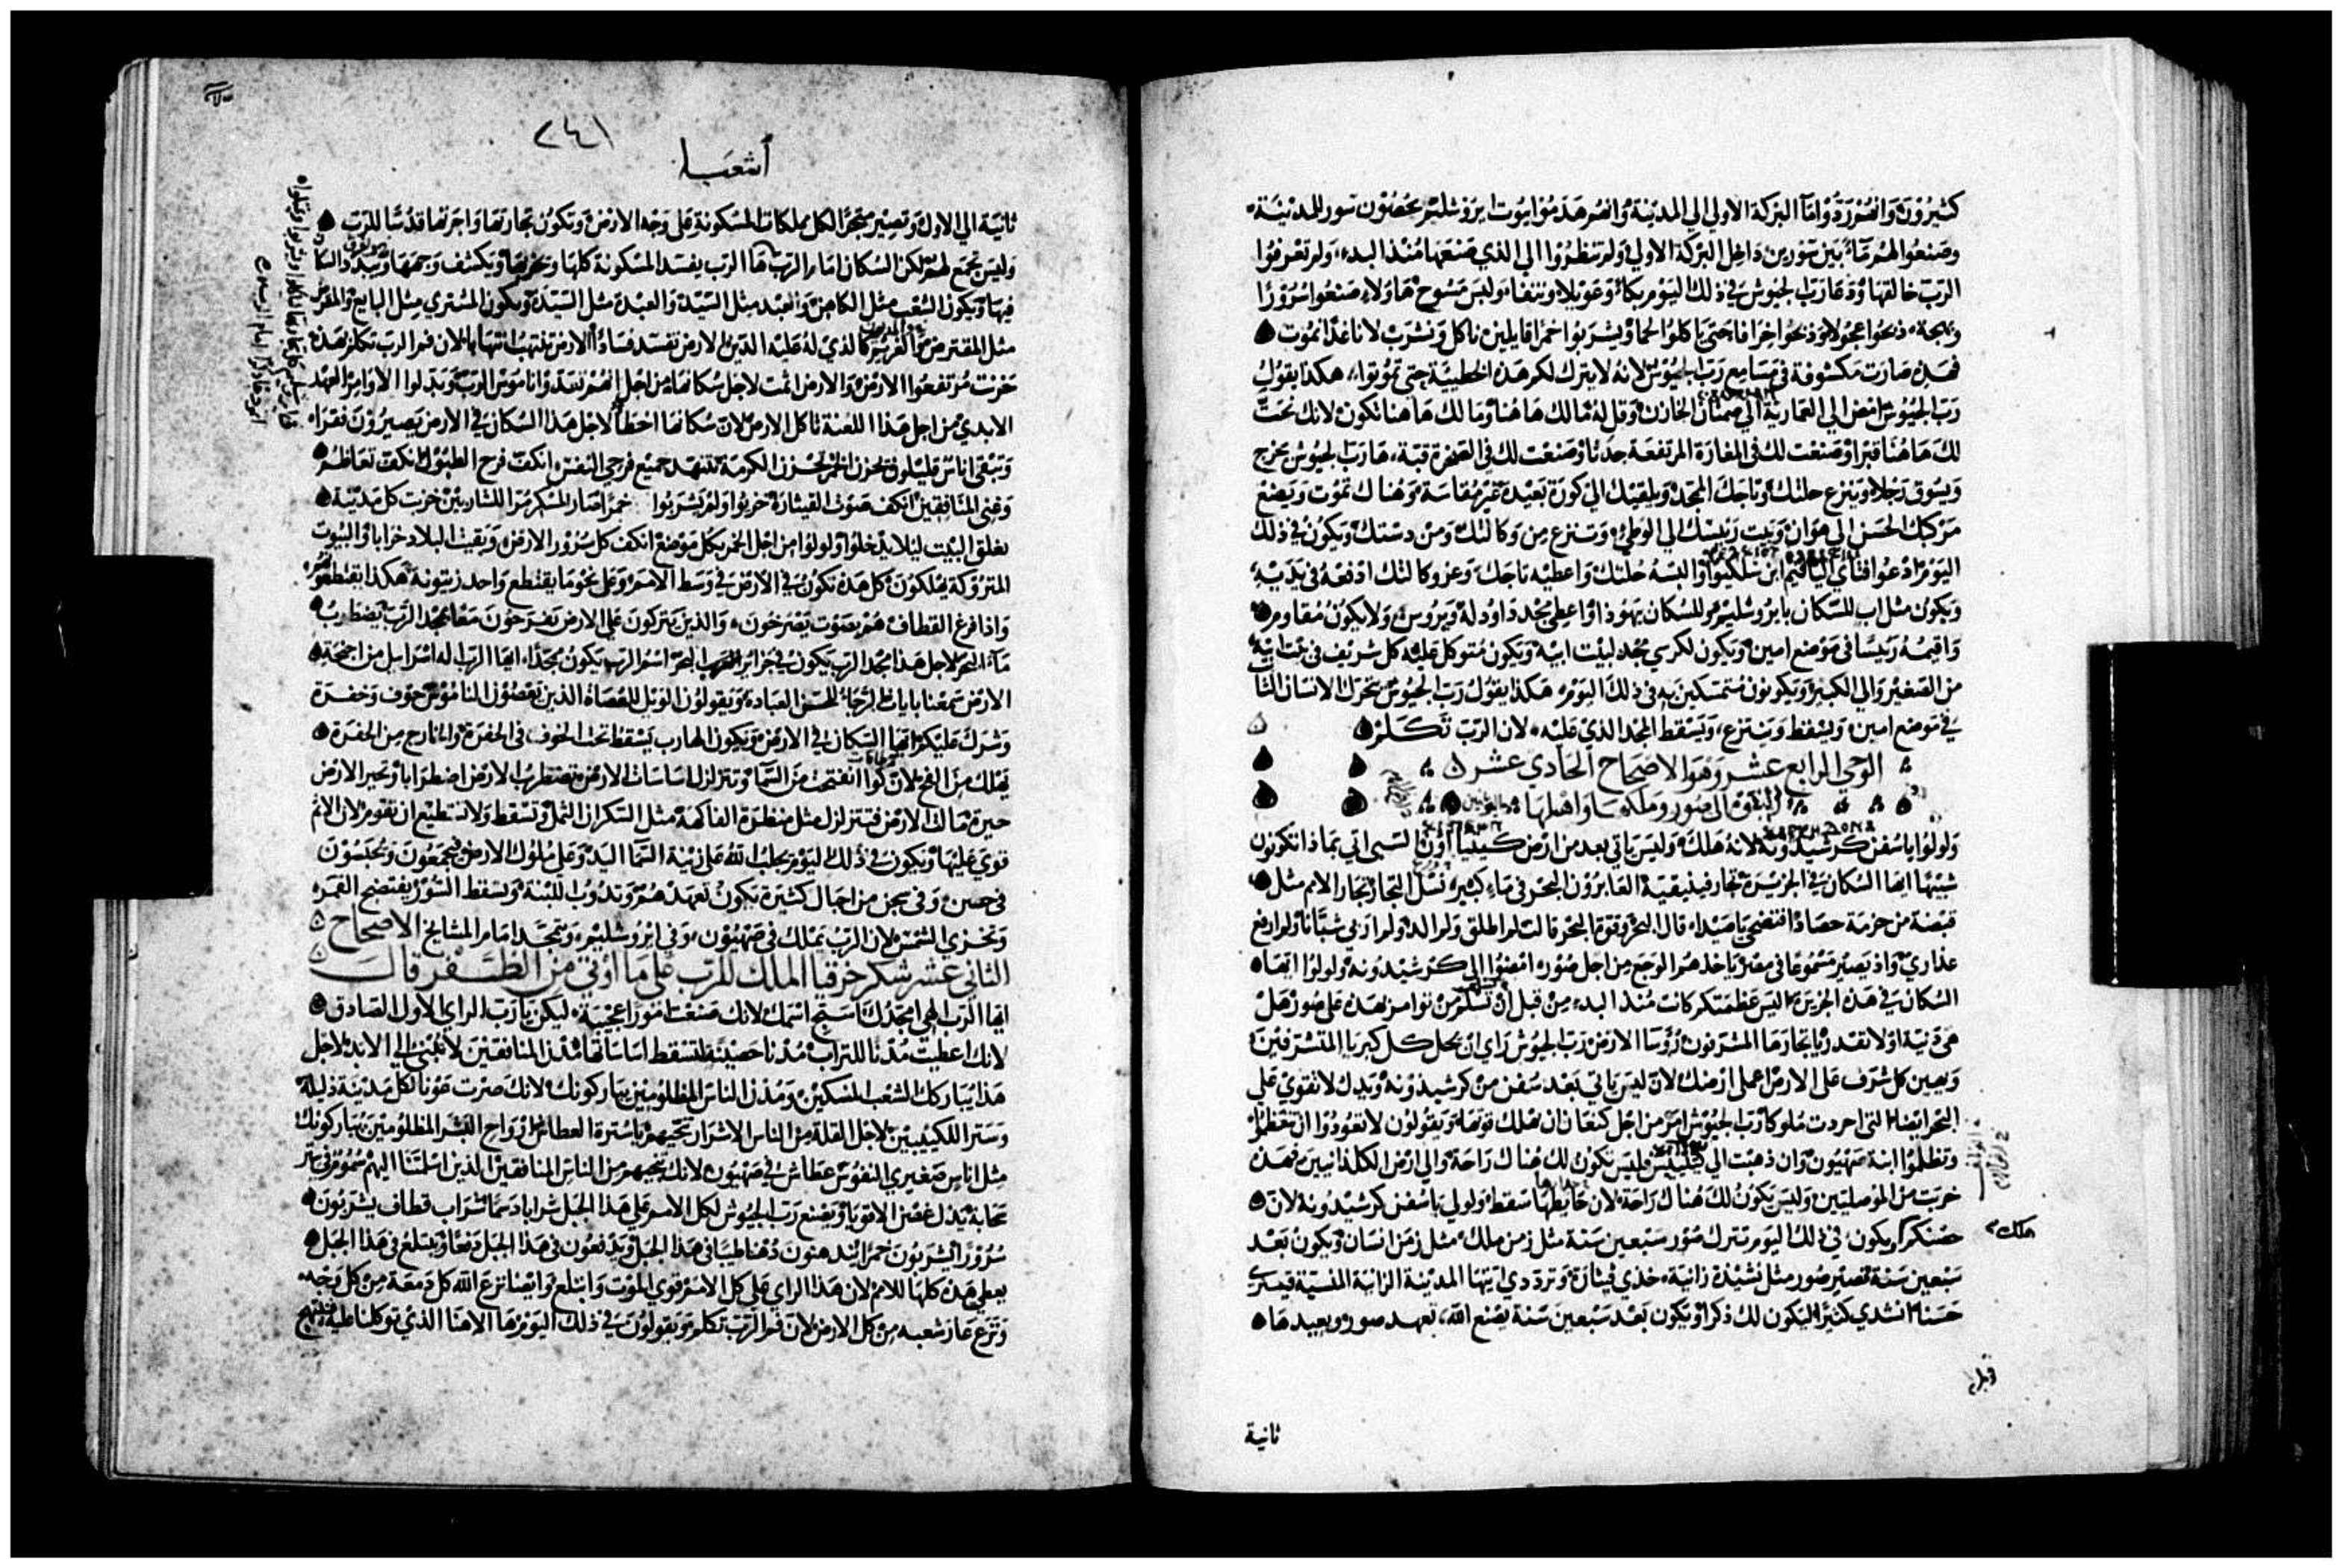 كثيرون وانهم رزدوا ماء البركة الاولي الي المدينة وانهم هدموا بيوت ايروشليم بحصون سور للمدينة
وصنعوا لهم ماء بين سورين داخل البركة الاولي ولم تنظروا الي الذي صنعها منذ البدء، ولم تعرفوا
الرب خالقها ودعا رب الجيوش في ذلك اليوم بكاء وعويلا ونتفا ولبس مسوح هاولاء صنعوا سرورا
وبهجة ذبحوا عجولا وذبحوا اخرافا حتي ياكلوا لحما ويشربوا خمرا قايلين ناكل ونشرب لاننا غدا نموت
فهذه صارت مكشوفة في مسامع رب الجيوش لانه لا يترك لكم هذه الخطيئة حتي تموتوا، هكذا يقول
رب الجيوش امض الي العمارية الي صمنان الخازن وقل له مالك هاهنا وما لك هاهنا تكون لانك نحت
لك هاهنا قبرا وصنعت لك في المغارة المرتفعة حدثا وصنعت لك في الصخرة قبة، ها رب الجيوش يخرج
ويسوق رجلا وينزع حلتك وتاجك المجد ويلقيك الي كورة بعيدة غير مقاسة وهناك تموت ويصنع
مركبك الحسن الي هوان وبيت رييسك الي الوطئ وتنزع من وكالتك ومن دستك ويكون في ذلك
اليوم ادعوا فتاي الياقيم ابن شلكيوا والبسه حلتك واعطيه تاجك وعز وكالتك ادفعه في يديه
ويكون مثل اب للسكان بايروشليم وللسكان يهوذا واعطي مجد داوود له ويروس ولا يكون مقاوم
واقيمه رييسا في موضع امين ويكون لكرسي مجد لبيت ابيه ويكون متوكل عليه كل شريف في بيت ابيه
من الصغير والي الكبير ويكونون متمسكين به في ذلك اليوم، هكذا يقول رب الجيوش يتحرك الانسان الثابت
في موضع امين ويسقط وينتزع، ويسقط المجد الذي عليه، لان الرب تكلم
الوحي الرابع عشر وهوا الاصحاح الحادي عشر
النبوة الي صور وملكها واهلها
ولولوا ياسفن كرشيدونة لانه هلك وليس ياتي بعد من ارض كيتيا اون السبي اتي بماذا تكونون
شبيها ايها السكان في الجزيرة تجار فينيقية العابرون البحر في ماء كبير نسل التجار تجار الامم مثل
قبضة من حزمة حصاد افتضحي ياصيدا، قال البحر وقوة البحر قالت لم اطلق ولم الد ولم اربي شبانا ولم ارفع
عذاري واذ يصير مسموعا في مصر ياخذهم الوجع من اجل صور امضوا الي كرشيدونة ولولوا ايها
السكان في هذه الجزيرة اليس عظمتكم كانت منذ البدء من قبل ان تسلم من توامر بهذه علي صور هل
هي دنية او لا تقدر يا تجارها المشرفون رووسا الارض رب الجيوش راي ان يحل كل كبريا المتشرفين
ويهين كل شرف علي الارض اعملي ارضك لان ليس ياتي بعد سفن من كرشيدونة ويدك لا تقوي علي
البحر ايضا التي احردت ملوكا رب الجيوش امر من اجل كنعان ان تهلك قوتها ويقولون لا تعودوا ان
وتظلموا ابنة صهيون وان ذهبت الي كيتييس فليس تكون لك هناك راحة والي ارض الكلدانيين فهذه
خربت من الموصليين وليس يكون لك هناك راحة لان حايطها سقط ولولي ياسفن كرشيدونة لان
حصنكم ويكون في ذلك اليوم تترك صور سبعين سنة مثل زمن ملك مثل زمن انسان ويكون بعد
سبعين سنة تصير صور مثل نشيدة زانية، خذي قيثارة وترددي ايتها المدينة الزانية المنسية
حسنا انشدي كثيرا ليكون لك ذكر ويكون بعد سبعين سنة يصنع الله، تعهد صور ويعيدها
ملك
ثانية
٢٤١
اشعيا
ثانية الي الاول وتصير متجرا لكل مملكات المسكونة علي وجه الارض وتكون تجارتها واجرتها قدسا للرب
وليس تجمع لهم لكن السكان امام الرب ها الرب يفسد المسكونة كلها ويخربها ويكشف وجهها ويبدد السكان
فيها ويكون الشعب مثل الكاهن والعبد مثل السيد والعبدة مثل السيدة ويكون المشتري مثل البايع والمقرض
مثل المقترض والغريم كالذي له عليه الدين الارض تفسد فسادا الارض تنتهب انتهابا لان فم الرب تكلم بهذه
حزنت مرتفعوا الارض والارض اثمت لاجل سكانها من اجل انهم تعدوا ناموس الرب وبدلوا الاوامر العهد
الابدي من اجل هذا اللعنة تاكل الارض لان سكانها اخطا لاجل هذا السكان في الارض يصيرون فقراء
وتبقي اناس قليلون يحزن الخمر تحزن الكرمة تتنهد جميع فرحي النفس انكف فرح الطبول انكف تعاظم
وغني المنافقين انكف صوت القيثارة خزيوا ولم يشربوا خمرا صار المسكر مرا للشاربين خربت كل مدينة
تغلق البيت ليلا يدخلوا ولولوا من اجل الخمر بكل موضع انكف كل سرور الارض وبقيت البلاد خرابا والبيوت
المتروكة يهلكون كل هذه تكون في الارض في وسط الامم وعلي نحو ما يقتطع واحد زيتونة هكذا يقتطعوهم
واذا فرغ القطاف هم بصوت يصرخون، والذين يتركون علي الارض يفرحون معا بمجد الرب يضطرب
ماء البحر لاجل هذا مجد الرب يكون في جزاير البحر اسم الرب يكون ممجدا، ايها الرب اله اسراييل من اجنحة
الارض سمعنا بايات الرجاء لحسن العبادة ويقولون الويل للعصاة الذين يعصون الناموس خوف وحفرة
وشرك عليكم ايها السكان في الارض ويكون الهارب يسقط تحت الخوف في الحفرة والخارج من الحفرة
يهلك من الفخ لان كوا انفتحت من السما وتتزلزل اساسات الارض تضطرب الارض اضطرابا وتحير الارض
حيرة مالت الارض فتتزلزل مثل منظرة الفاكهة مثل السكران الثمل وتسقط ولا تستطيع ان تقوم لان الاثم
قوي عليها ويكون في ذلك اليوم يجلب الله علي زينة السما اليد وعلي ملوك الارض فيجمعون ويحبسون
في حصن وفي سجن من اجيال كثيرة يكون تعهدهم وتذوب اللبنة ويسقط السور يفتضح القمر
وتخزي الشمس لان الرب يملك في صهيون، وفي ايروشليم، ويتمجد امام المشايخ الاصحاح
الثاني عشر شكر حزقيا الملك للرب علي ما اوتي من الظفر قال
ايها الرب الهي امجدك اسبح اسمك لانك صنعت امورا عجيبة، ليكن يارب الراي الاول الصادق
لانك اعطيت مدنا للتراب مدنا حصينة لتسقط اساساتها مدن المنافقين لا تبني الي الابد لاجل
هذا يباركك الشعب المسكين ومدن الناس المظلومين يباركونك لانك صرت عونا لكل مدينة ذليلة
وسترا للكييبين لاجل القلة من الناس الاشرار تنجيهم ياسترة العطاش وارواح البشر المظلومين يباركونك
مثل اناس صغيري النفوس عطاش في صهيون لانك تنجيهم من الناس المنافقين الذين اسلمتنا اليهم
سحابة يذل غصن الاقويا ويصنع رب الجيوش لكل الامم علي هذا الجبل شرابا دسما شراب قطاف يشربون
سرورا يشربون خمرا يدهنون دهنا طيبا في هذا الجبل ويدفعون في هذا الجبل دفعا ويبتلع في هذا الجبل
يعطي هذه كلها للامم لان هذا الراي علي كل الامم قوي الموت وابتلع وايضا نزع الله كل دمعة من كل وجه
ونزع عار شعبه من كل الارض لان فم الرب تكلم ويقولون في ذلك اليوم ها الاهنا الذي توكلنا عليه